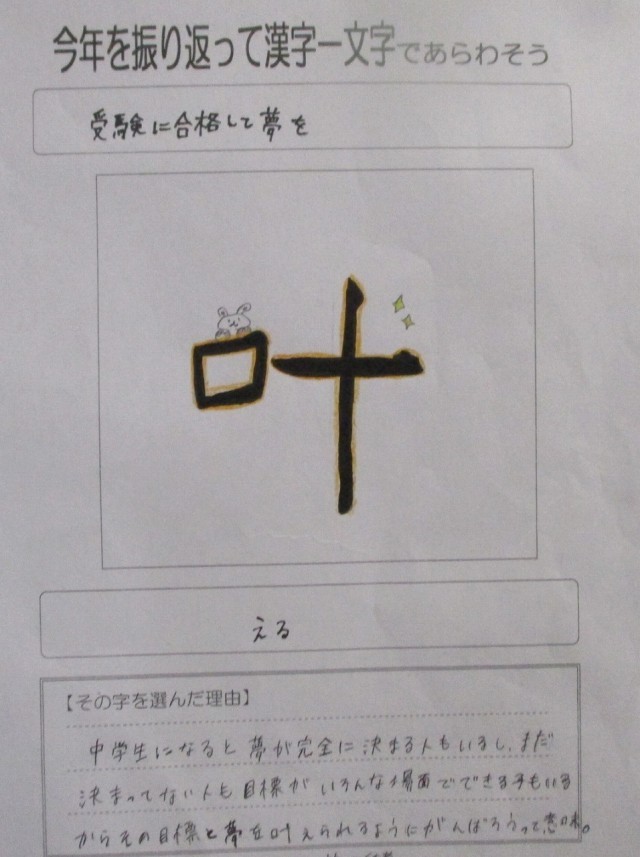 今年を振り返って漢字一文字であらわそう
受験に合格して夢を
叶
える
【その字を選んだ理由】
中学生になると夢が完全に決まる人もいるし、まだ
決まってない人も目標がいろんな場面でできる子もいる
からその目標と夢を叶えられるようにがんばろうって意味。